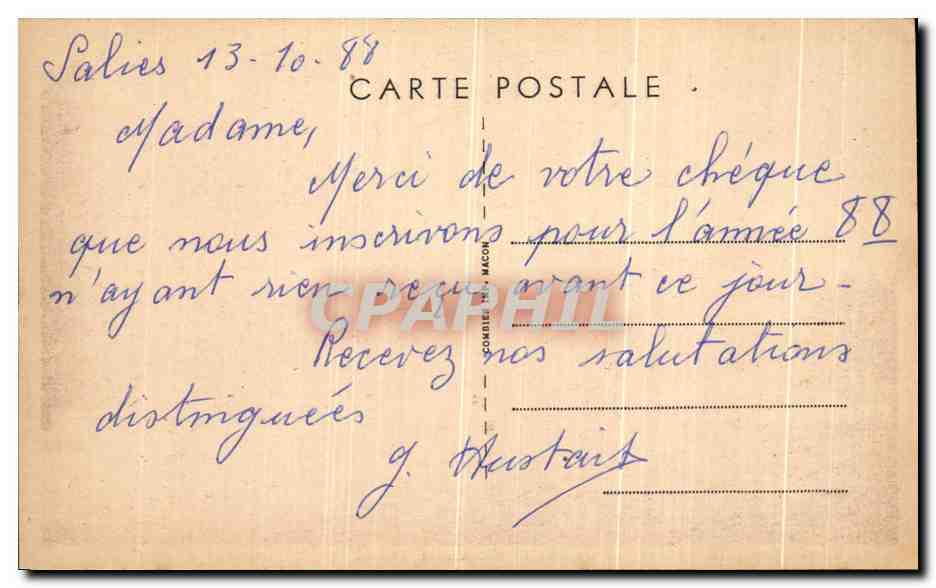 Salies 13-10-88
CARTE POSTALE
Madame,
Merci de votre chéque
que nous inscrivons pour l'année 88
n'ayant rien reçu avant ce jour -
Recevez nos salutations
distinguées
CPAPHIL
COMBIER IMP. MACON